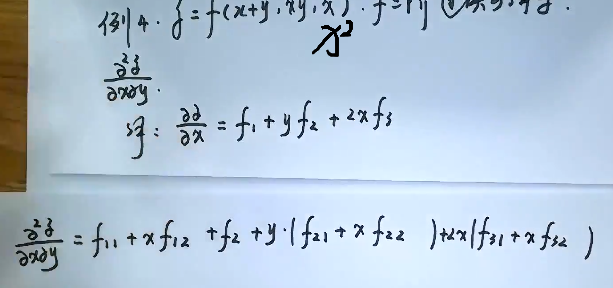 例4. z = f(x+y, xy, x) . f
x²
∂²z/∂x∂y.
解: ∂z/∂x = f₁ + y f₂ + 2x f₃
∂²z/∂x∂y = f₁₁ + x f₁₂ + f₂ + y·(f₂₁ + x f₂₂ ) + 2x(f₃₁ + x f₃₂ )